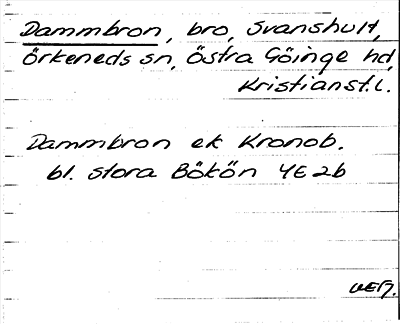 Dammbron, bro, Svanshult,
Örkeneds sn, Östra Göinge hd,
Kristianst. l.
Dammbron ek Kronob.
bl. stora Bökön 4E 2b